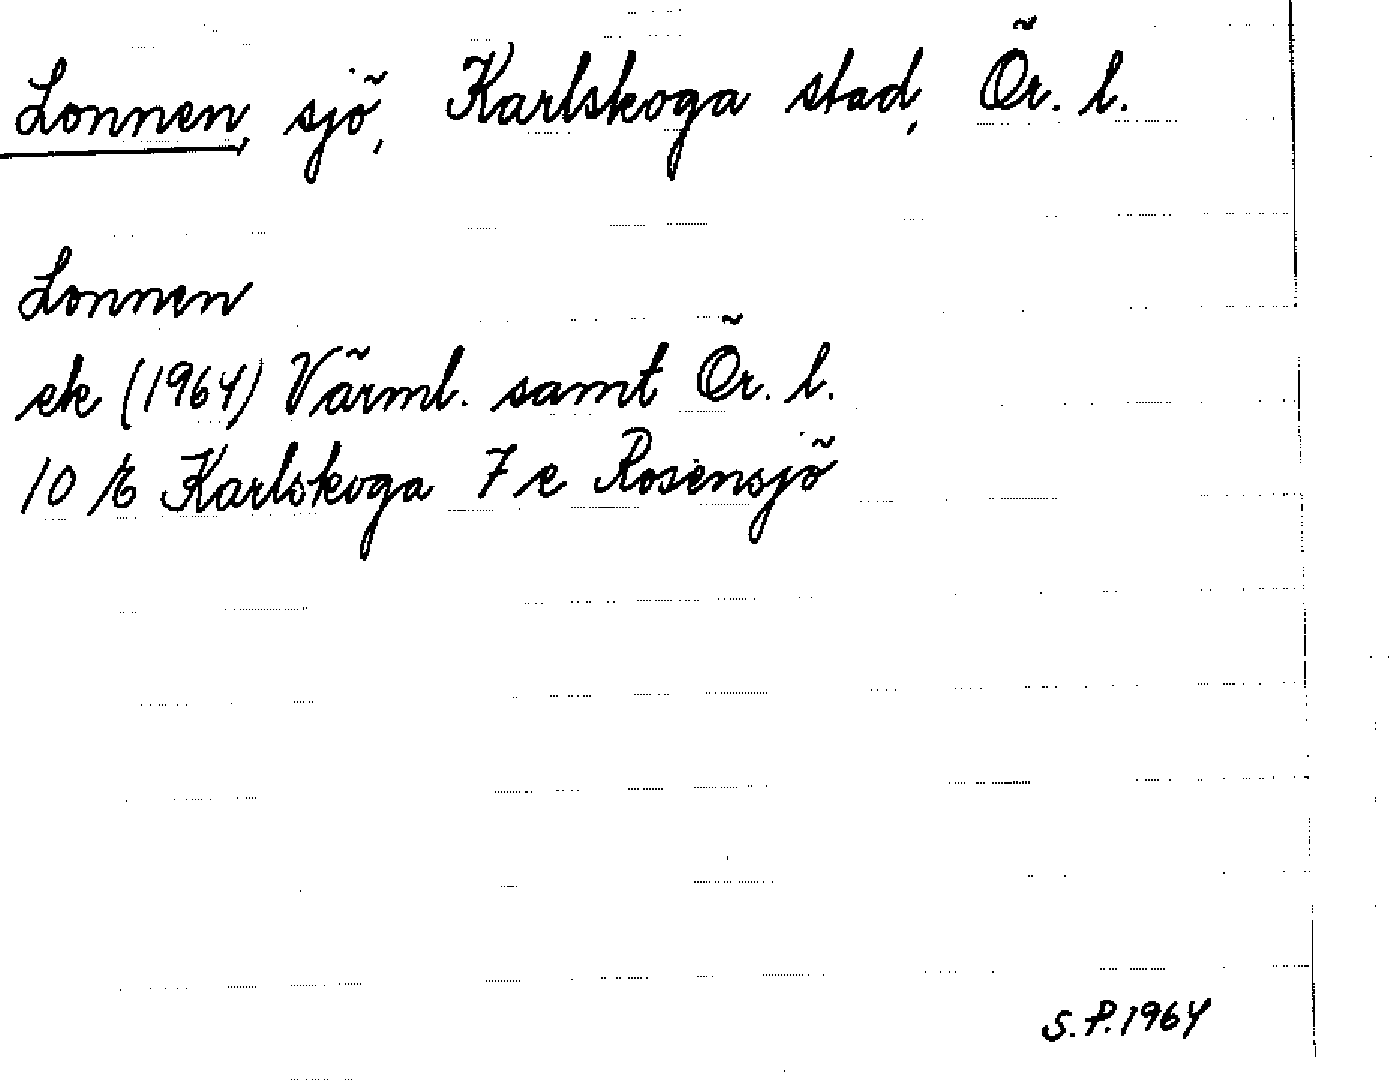 Lonnen, sjö, Karlskoga stad, Ör. l.
Lonnen
ek (1964) Värml. samt Ör. l.
10 E Karlskoga 7 e Rosensjö
S.P. 1964